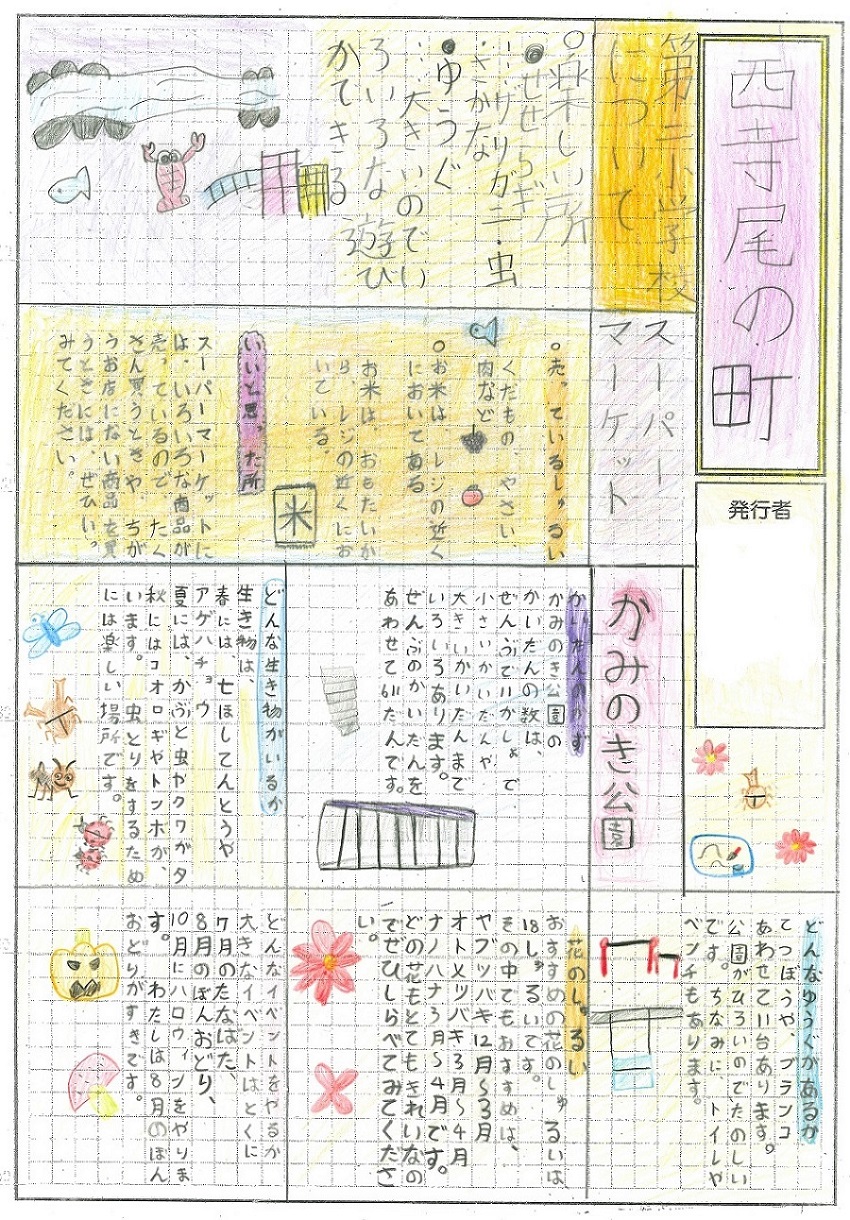 西寺尾の町
発行者
第二小学校
について
○楽しい所
●せせらぎ
…ザリガニ・虫
・さかな
●ゆうぐ
…大きいのでい
ろいろな遊び
ができる
スーパー
マーケット
○売っているしゅるい
くだもの、やさい、
肉など
○お米は、レジの近く
においてある
お米は、おもたいか
ら、レジの近くにお
いている。
米
いいと思った所
スーパーマーケットに
は、いろいろな商品が
売っているので、たく
さん買うときや、ちが
うお店にない商品を買
うときには、ぜひ、
みてください。
かみのき公園
かいだんのかず
かみのき公園の
かいだんの数は、
ぜんぶで11かしょで
小さいかいだんや
大きいかいだんまで
いろいろあります。
ぜんぶのかいだんを
あわせて61だんです。
どんな生き物がいるか
生き物は、
春には、七ほしてんとうや
アゲハチョウ
夏には、かぶと虫やクワガタ
秋にはコオロギやトンボが、
います。虫とりをするため
には楽しい場所です。
どんなゆうぐがあるか
てつぼうや、ブランコ
あわせて11台あります。
公園がひろいのでたのしい
です。ちなみに、トイレや
ベンチもあります。
花のしゅるい
おすすめの花のしゅるいは
18しゅるいです。
その中でもおすすめは、
ヤブツバキ12月〜3月
オトメツバキ3月〜4月
ナノハナ3月〜4月です。
どの花もとてもきれいなの
でぜひしらべてみてくださ
い。
どんなイベントをやるか
大きなイベントはとくに
7月のたなばた、
8月のぼんおどり、
10月にハロウィンをやりま
す。わたしは8月のぼん
おどりがすきです。